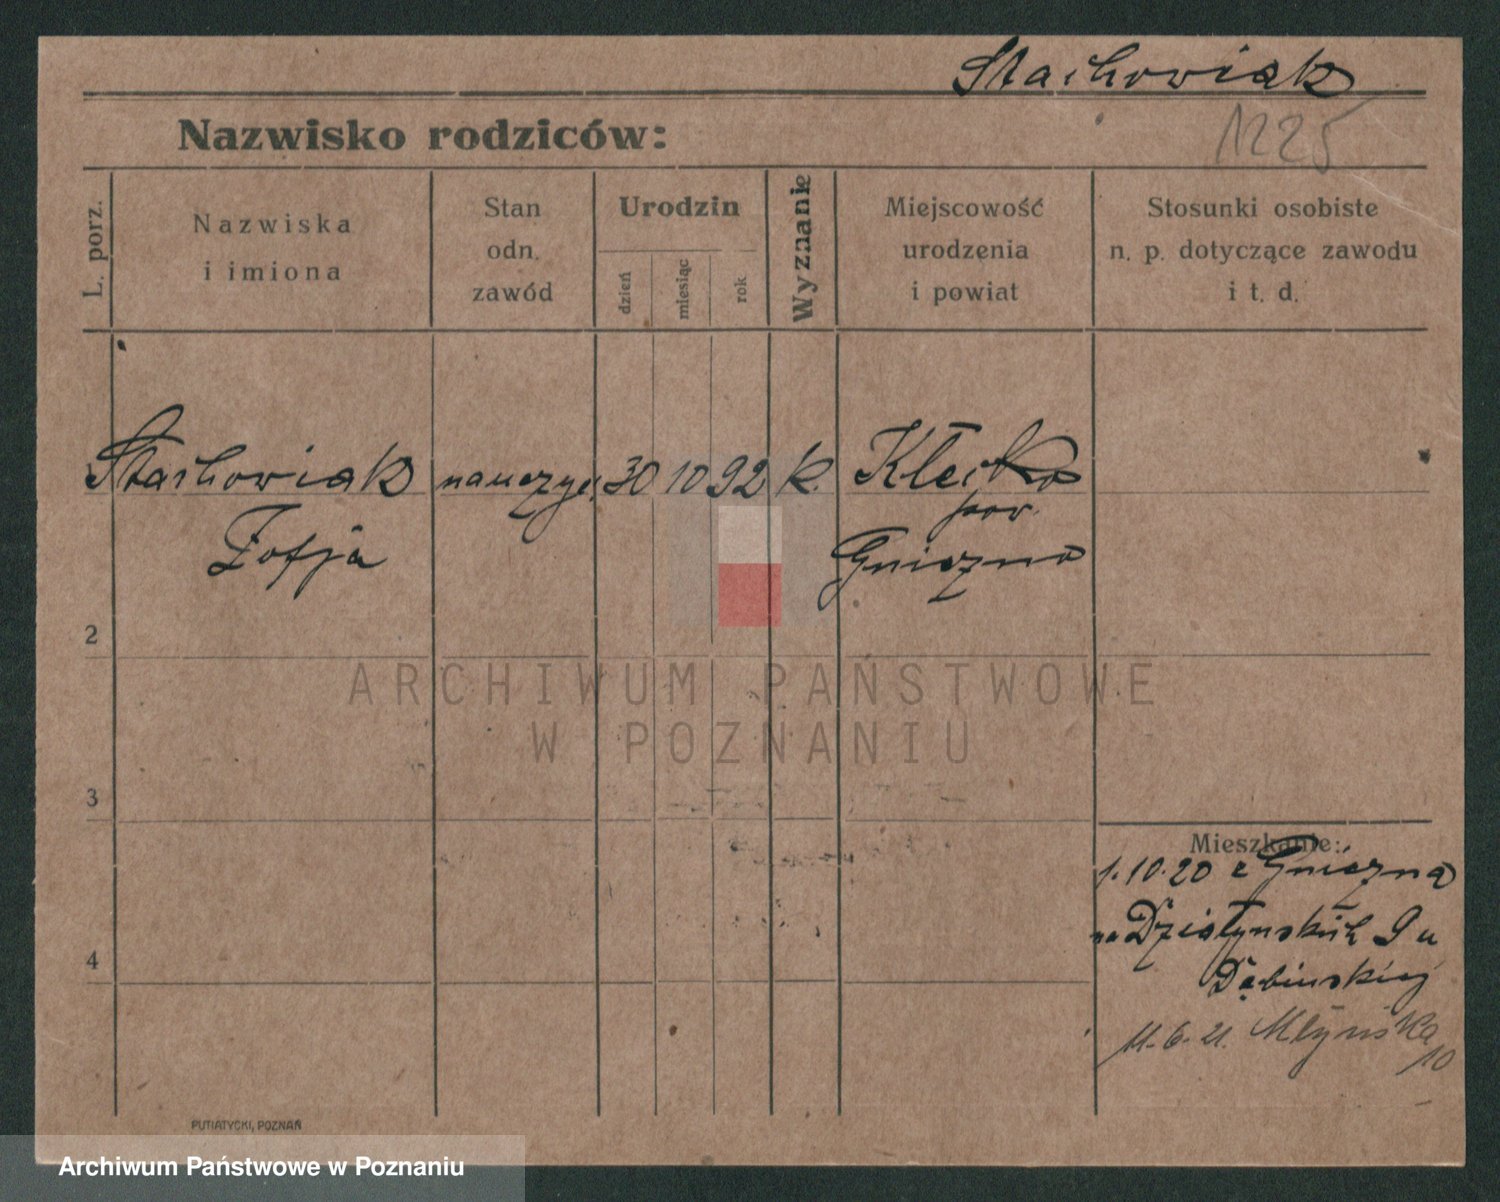 Stachowiak
Nazwisko rodziców:
1225
L. porz.
Nazwiska
i imiona
Stan
odn.
zawód
Urodzin
dzień
miesiąc
rok
Wyznanie
Miejscowość
urodzenia
i powiat
Stosunki osobiste
n. p. dotyczące zawodu
i t. d.
Stachowiak nauczyc. 30 10 92 k. Kłecko
pow.
Zofja Gniezno
2
3
4
ARCHIWUM PAŃSTWOWE
W POZNANIU
Mieszkanie:
1.10.20 z Gniezna
na Działyńskich 9 u
Dąbinskiej
11.6.21. Młyńska
10
PUTIATYCKI, POZNAŃ
Archiwum Państwowe w Poznaniu